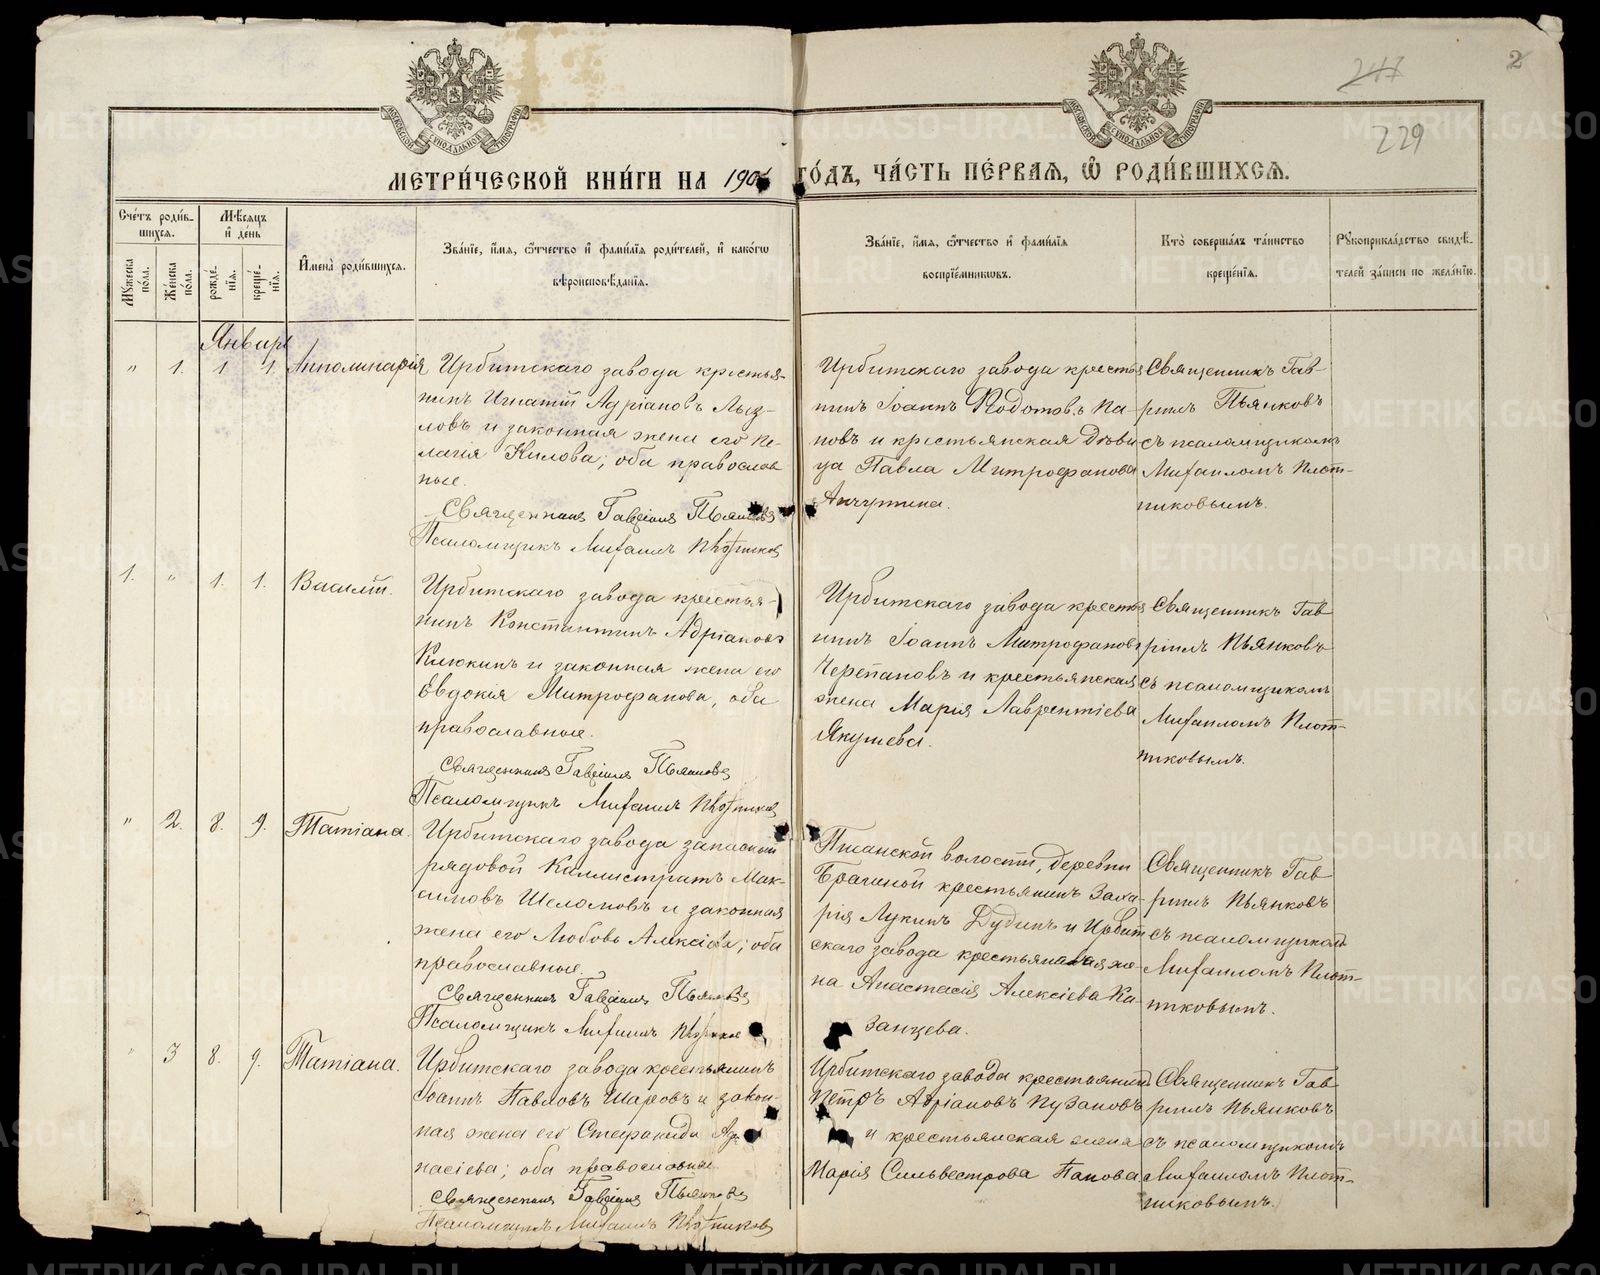 247
2
229
МОСКОВСКОЙ СѴНОДАЛЬНОЙ ТИПОГРАФІИ
МОСКОВСКОЙ СѴНОДАЛЬНОЙ ТИПОГРАФІИ
МЕТРИ́ЧЕСКОЙ КНИ́ГИ НА 190 ГО́ДЪ, ЧА́СТЬ ПЕ́РВАЯ, Ѡ҆ РОДИ́ВШИХСЯ.
Сче́тъ роди́в-
шихся.
Мꙋ́жеска по́ла.
Же́нска по́ла.
Мѣ́сяцъ и҆ де́нь
рожде́нїя.
креще́нїя.
И҆мена̀ роди́вшихся.
Зва́нїе, и҆́мя, ѻ҆́тчество и҆ фами́лїя роди́телей, и҆ како́гѡ
вѣроисповѣ́данїя.
Зва́нїе, и҆́мя, ѻ҆́тчество и҆ фами́лїя
воспрїе́мниковъ.
Кто̀ соверша́лъ та́инство
креще́нїя.
Рꙋкоприкла́дство свидѣ́-
телей за́писи по жела́нїю.
Январь
" 1. 1 1 Апполинарія
Ирбитскаго завода крестья-
нинъ Игнатій Адріановъ Лыз-
ловъ и законная жена его Пе-
лагія Килова; оба православ
ные.
Священникъ Гавріилъ Пьянковъ
Псаломщикъ Михаилъ Плотников
Ирбитскаго завода крестья
нинъ Іоаннъ Ѳедотовъ Па-
новъ и крестьянская дѣви
ца Павла Митрофанова
Анчутина.
Священникъ Гав-
ріилъ Пьянковъ
съ псаломщикомъ
Михаиломъ Плот-
никовымъ.
1. " 1. 1. Василій.
Ирбитскаго завода крестья-
нинъ Константинъ Адріановъ
Клюкинъ и законная жена его
Евдокія Митрофанова, оба
православные.
Священникъ Гавріилъ Пьянковъ
Псаломщикъ Михаилъ Плотников
Ирбитскаго завода крестья
нинъ Іоаннъ Митрофановъ
Черепановъ и крестьянская
жена Марія Лаврентіева
Якушева.
Священникъ Гав
ріилъ Пьянковъ
съ псаломщикомъ
Михаиломъ Плот-
никовымъ.
" 2. 8. 9. Татіана.
Ирбитскаго завода запасный
рядовой Каллистратъ Мак-
симовъ Шеломовъ и законная
жена его Любовь Алексіева; оба
православные.
Священникъ Гавріилъ Пьянковъ
Псаломщикъ Михаилъ
Писанской волости, деревни
Брагиной крестьянинъ Заха-
рія Лукинъ Дудинъ и Ирбит
скаго завода крестьянская же-
на Анастасія Алексіева Ка-
занцева.
Священникъ Гав
ріилъ Пьянковъ
съ псаломщикомъ
Михаиломъ Плот-
никовымъ.
" 3 8. 9. Татіана.
Ирбитскаго завода крестьянинъ
Іоаннъ Павловъ Шаровъ и закон-
ная жена его Стефанида
насіева; оба православные.
Священникъ Гавріилъ Пьянковъ
Псаломщикъ Михаилъ Плотниковъ
Ирбитскаго завода крестьянинъ
Петръ Адріановъ Пузановъ
и крестьянская жена
Марія Сильвестрова Панова
Священникъ Гав
ріилъ Пьянковъ
съ псаломщикомъ
Михаиломъ Плот-
никовымъ.
METRIKI.GASO-URAL.RU